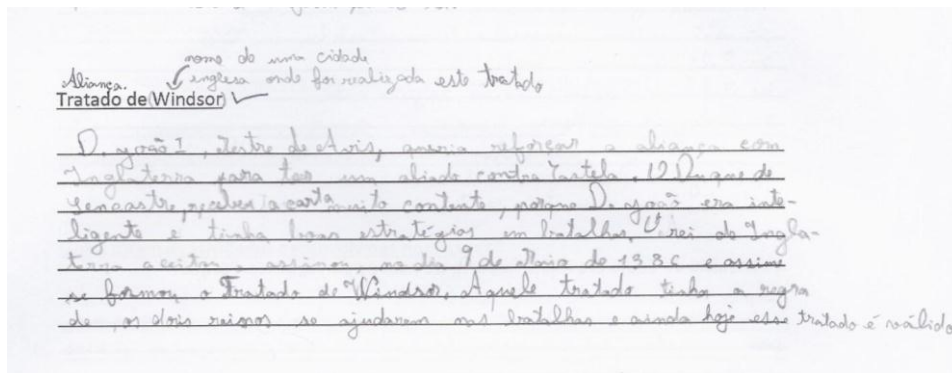 nome de uma cidade
Aliança. inglesa onde foi realizada este tratado
Tratado de Windsor
D. João I, Mestre de Avis, queria reforçar a aliança com
Inglaterra para ter um aliado contra Castela. O Duque de
Lencastre, recebeu a carta muito contente, porque D. João era inte-
ligente e tinha boas estratégias em batalhas. O rei de Ingla-
terra aceitou, assinou, no dia 9 de Maio de 1386 e assim
se formou o Tratado de Windsor. Aquele tratado tinha a regra
de, os dois reinos se ajudarem nas batalhas e ainda hoje esse tratado é válido